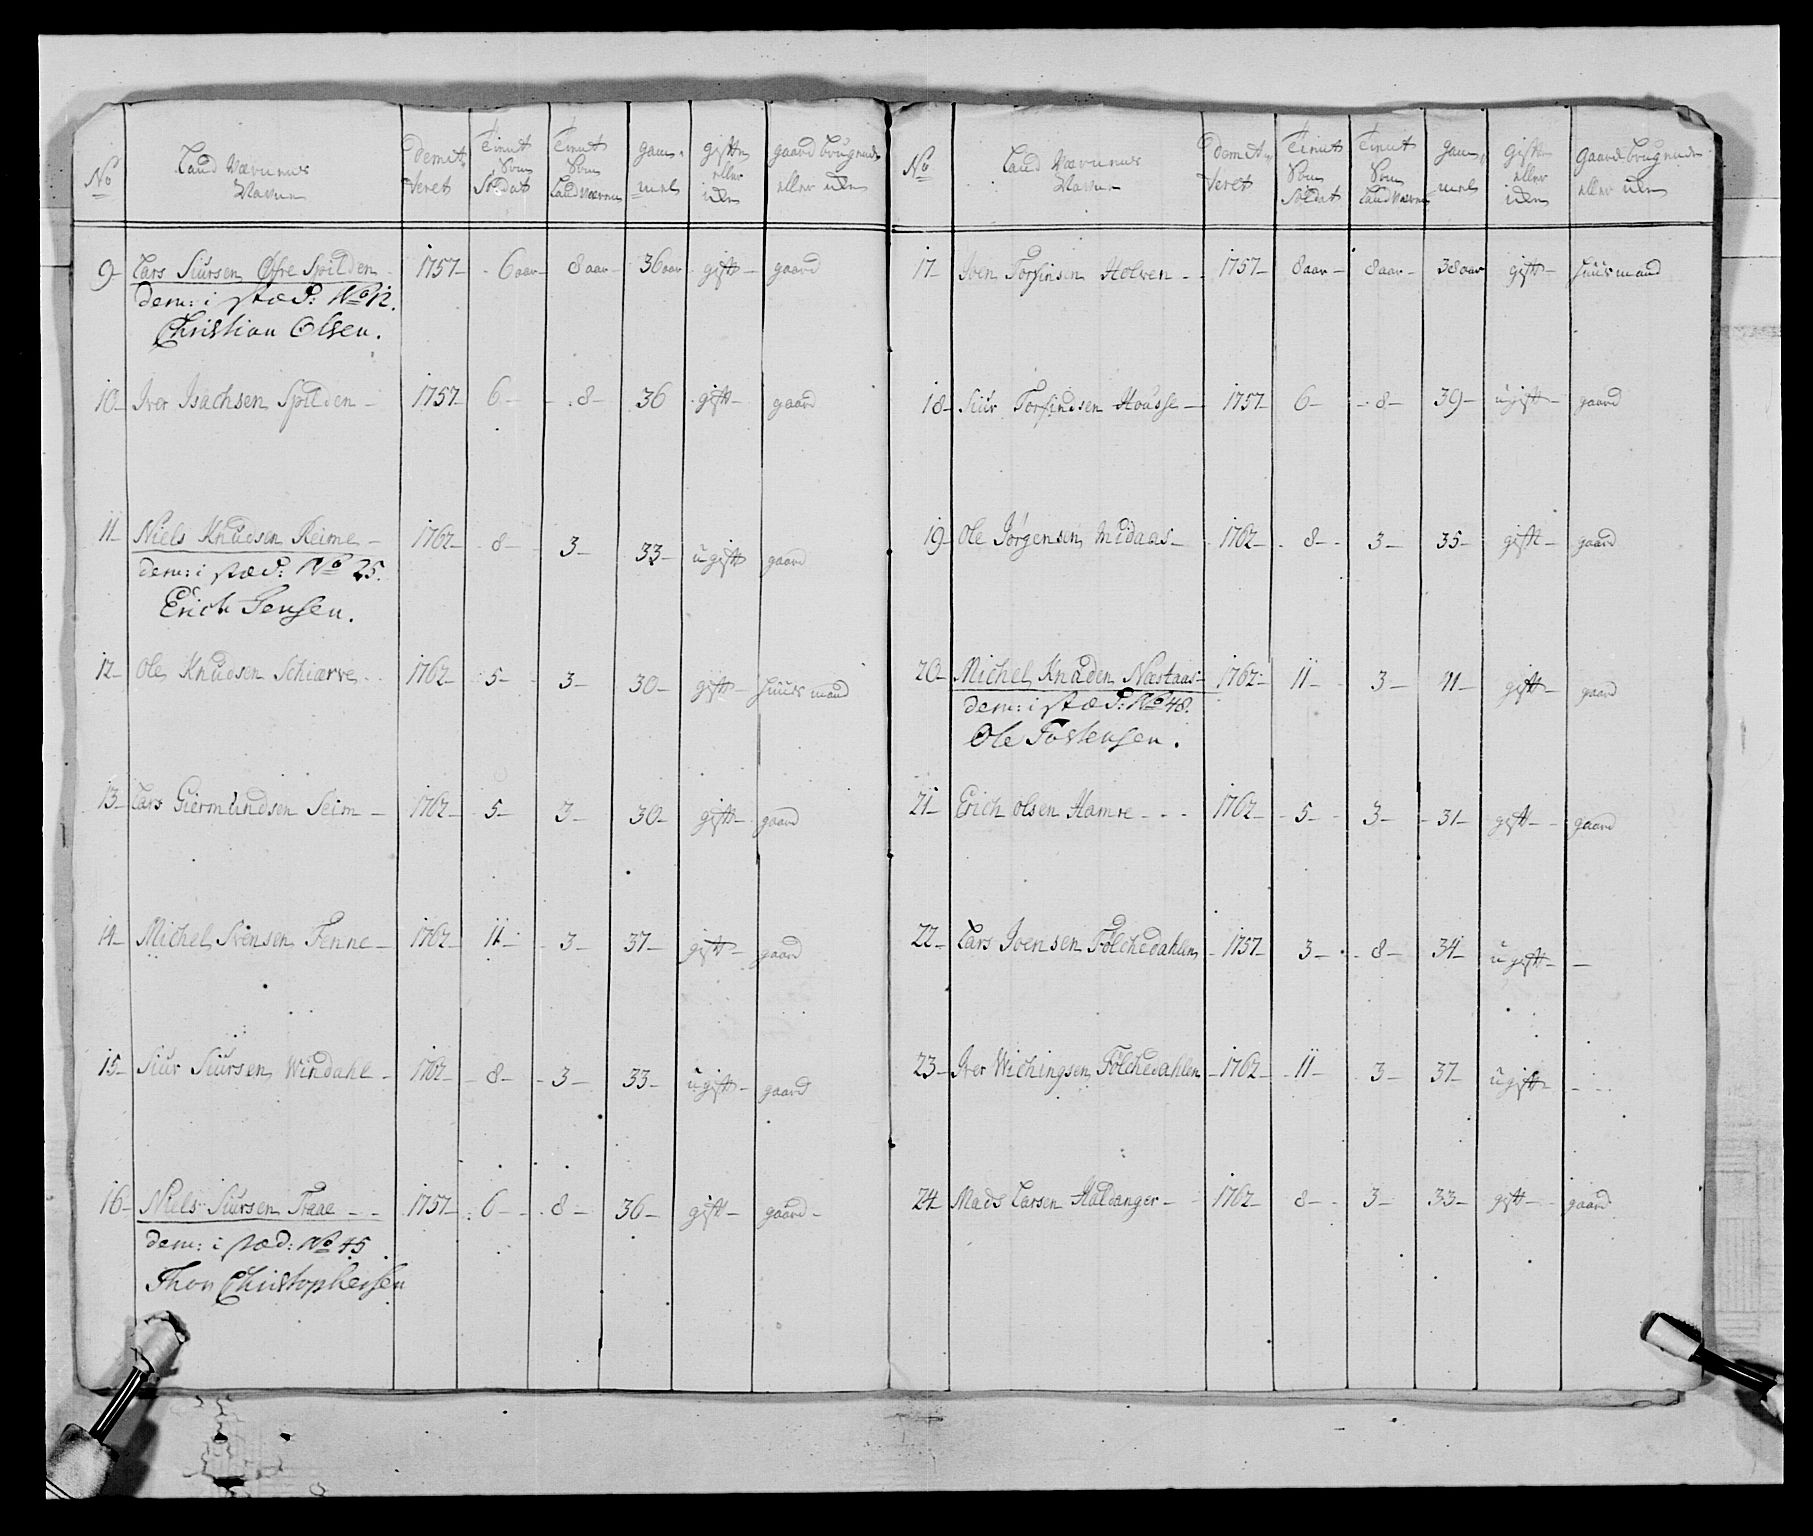 No | Land Værnnes Navne | Demit- teret | Tient Som Soldat | Tient Som Land Værnes | gam- mel | gifte eller uden | gaard brugende eller uden
9 | Lars Siursen Øfre Spilden | 1757 | 6 aar | 8 aar | 36 aar | gift | gaard
dem: i stæd: No 12.
Christian Olsen.
10 | Iver Isachsen Spilden | 1757 | 6 | 8 | 36 | gift | gaard
11 | Niels Knudsen Reime | 1762 | 8 | 3 | 33 | ugift | gaard
dem: i stæd: No 25.
Erich Jensen.
12 | Ole Knudsen Schiærve | 1762 | 5 | 3 | 30 | gift | Huusmand
13 | Lars Giermundsen Seim | 1762 | 5 | 3 | 30 | gift | gaard
14 | Michel Svensen Fenne | 1762 | 11 | 3 | 37 | gift | gaard
15 | Siur Siursen Windahl | 1762 | 8 | 3 | 33 | ugift | gaard
16 | Niels Siursen Traae | 1757 | 6 | 8 | 36 | gift | gaard
dem: i stæd: No 45
Thor Christophersen
No | Land Værnnes Navne | Demit- teret | Tient Som Soldat | Tient Som Land Værnes | gam- mel | gifte eller uden | Gaard brugende eller uden
17 | Iven Torfinsen Holven | 1757 | 8 aar | 8 aar | 38 aar | gift | Huusmand
18 | Siur Torfindsen Housse | 1757 | 6 | 8 | 39 | ugift | gaard
19 | Ole Jørgensen Midaas | 1762 | 8 | 3 | 35 | gift | gaard
20 | Michel Knuden Næstaas | 1762 | 11 | 3 | 41 | gift | gaard
dem: i stæd: No 48.
Ole Tostensen.
21 | Erich olsen Hamre | 1762 | 5 | 3 | 31 | gift | gaard
22 | Lars Ivensen Følchedahlen | 1757 | 3 | 8 | 34 | ugift | —
23 | Iver Wichingsen Følchedahlen | 1762 | 11 | 3 | 37 | ugift | —
24 | Mads Larsen Haldanger | 1762 | 8 | 3 | 33 | gift | gaard